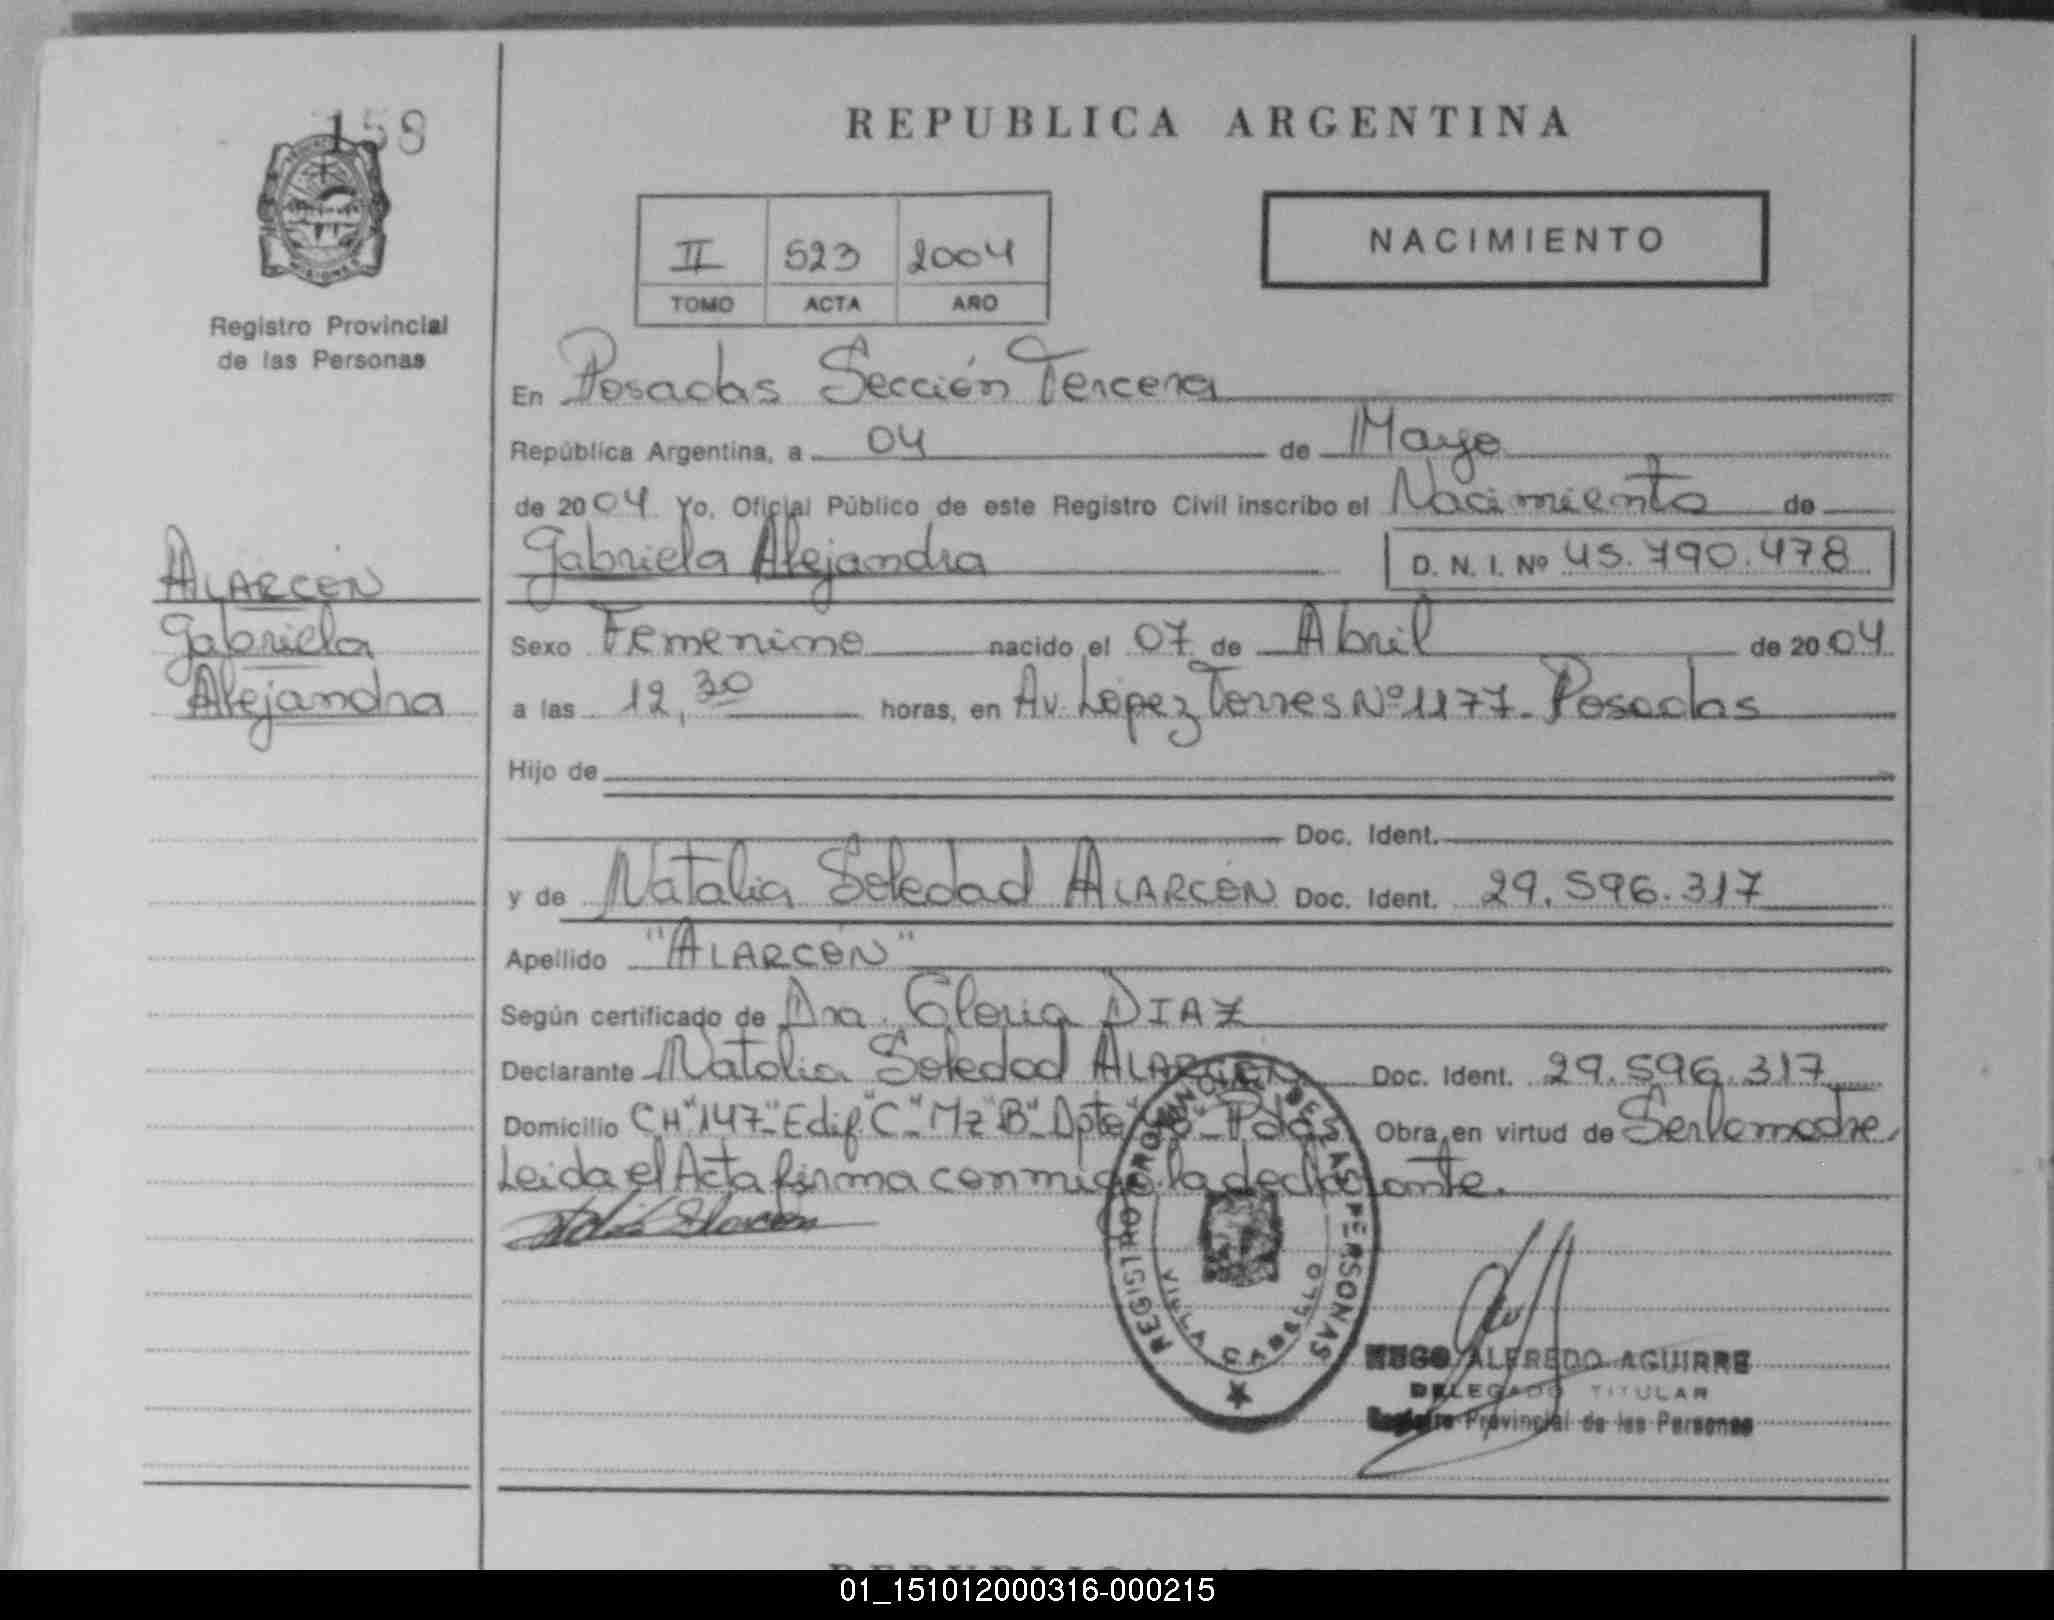 158
REPUBLICA ARGENTINA
II 523 2004
TOMO ACTA AÑO
NACIMIENTO
Registro Provincial
de las Personas
En Posadas Sección Tercera
República Argentina, a 04 de Mayo
de 2004 Yo, Oficial Público de este Registro Civil inscribo el Nacimiento de
Gabriela Alejandra D. N. I. Nº 45.790.478
ALARCÓN
Gabriela
Alejandra
Sexo Femenino nacido el 07 de Abril de 2004
a las 12,30 horas, en Av. López Torres Nº 1177- Posadas
Hijo de
Doc. Ident.
y de Natalia Soledad ALARCÓN Doc. Ident. 29.596.317
Apellido "ALARCÓN"
Según certificado de Dra. Gloria DIAZ
Declarante Natalia Soledad ALARCÓN Doc. Ident. 29.596.317
Domicilio CH"147"-Edif"C"-Mz"B"-Dpto - Pdas Obra en virtud de Serlamadre
Leida el Acta firma conmigo la declarante.
REGISTRO PROVINCIAL DE LAS PERSONAS
VILLA CABELLO
HUGO ALFREDO AGUIRRE
DELEGADO TITULAR
Registro Provincial de las Personas
01_151012000316-000215